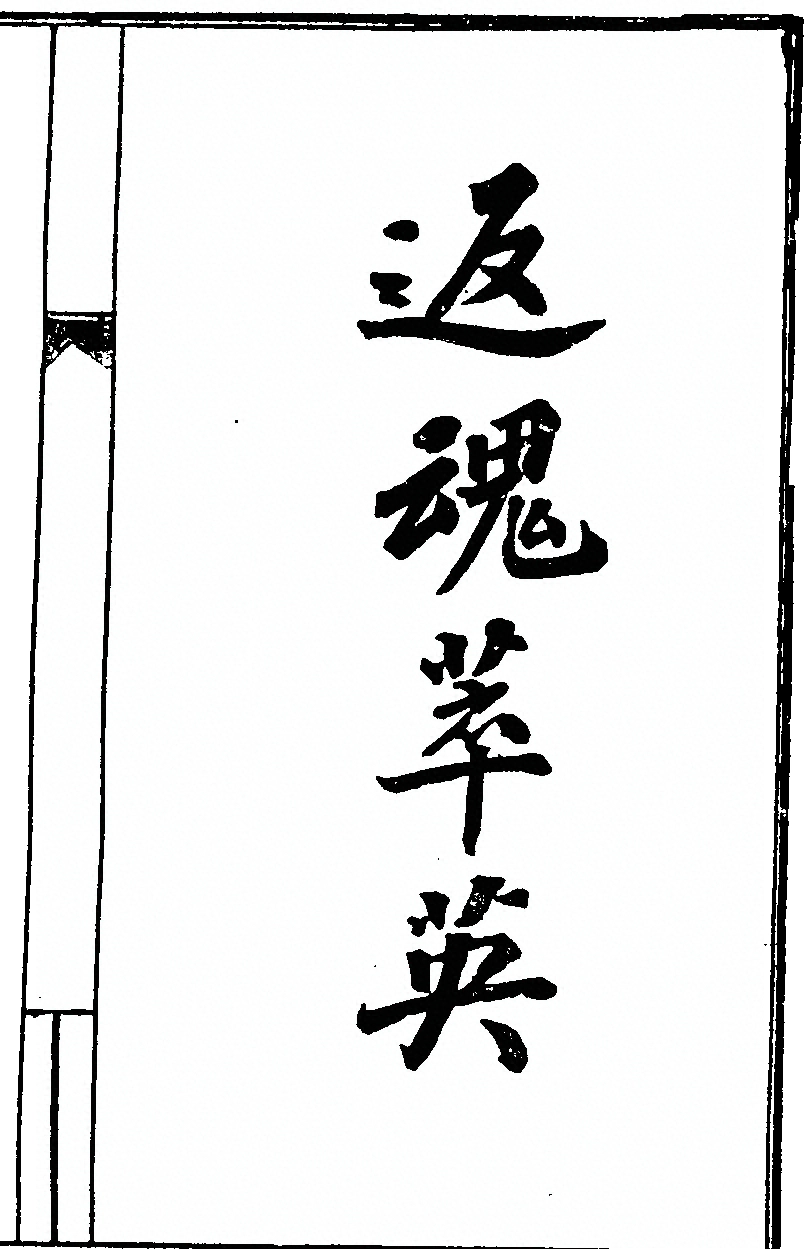 返魂萃英